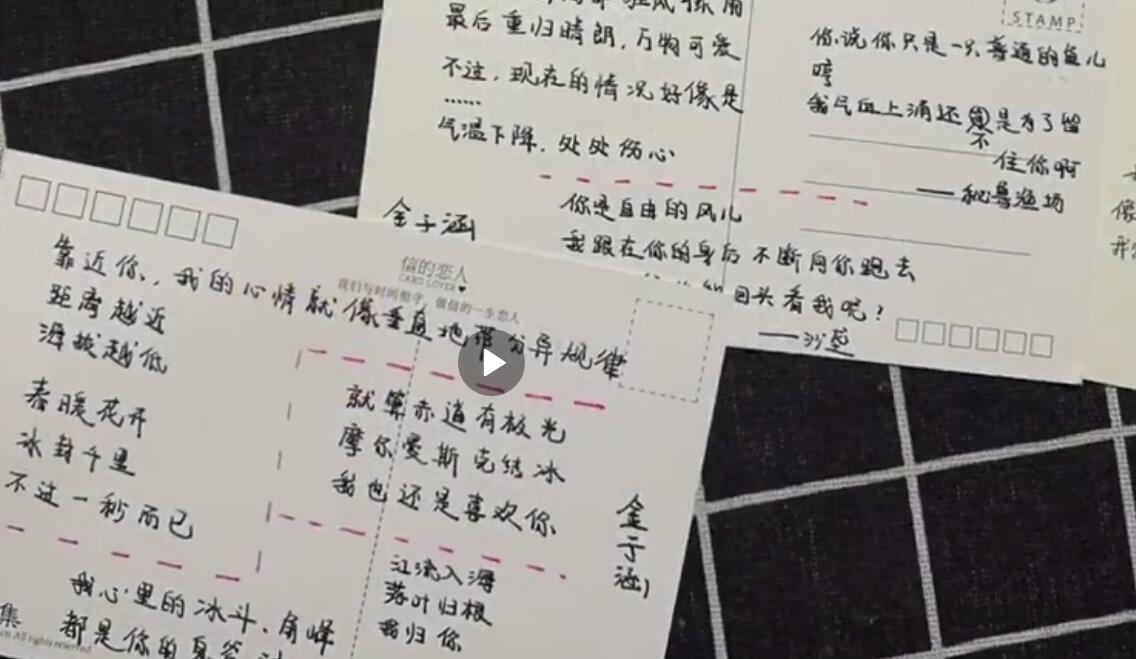 最后重归晴朗,万物可爱
不过,现在的情况好像是
……
气温下降,处处伤心
金子涵
STAMP
你说你只是一只普通的鱼儿
哼
我气血上涌还不是为了留
住你啊
——秘鲁渔场
你是自由的风儿
我跟在你的身后不断向你跑去
回头看我呢?
——沙丘
信的恋人
CARD LOVER
我们与时间相守,做信的一生恋人
靠近你,我的心情就像垂直地带分异规律
距离越近
海拔越低
春暖花开
冰封千里
不过一秒而已
就算赤道有极光
摩尔曼斯克结冰
我也还是喜欢你
金子涵
我心里的冰斗、角峰
都是你的
江流入海
落叶归根
我归你
集
All rights reserved